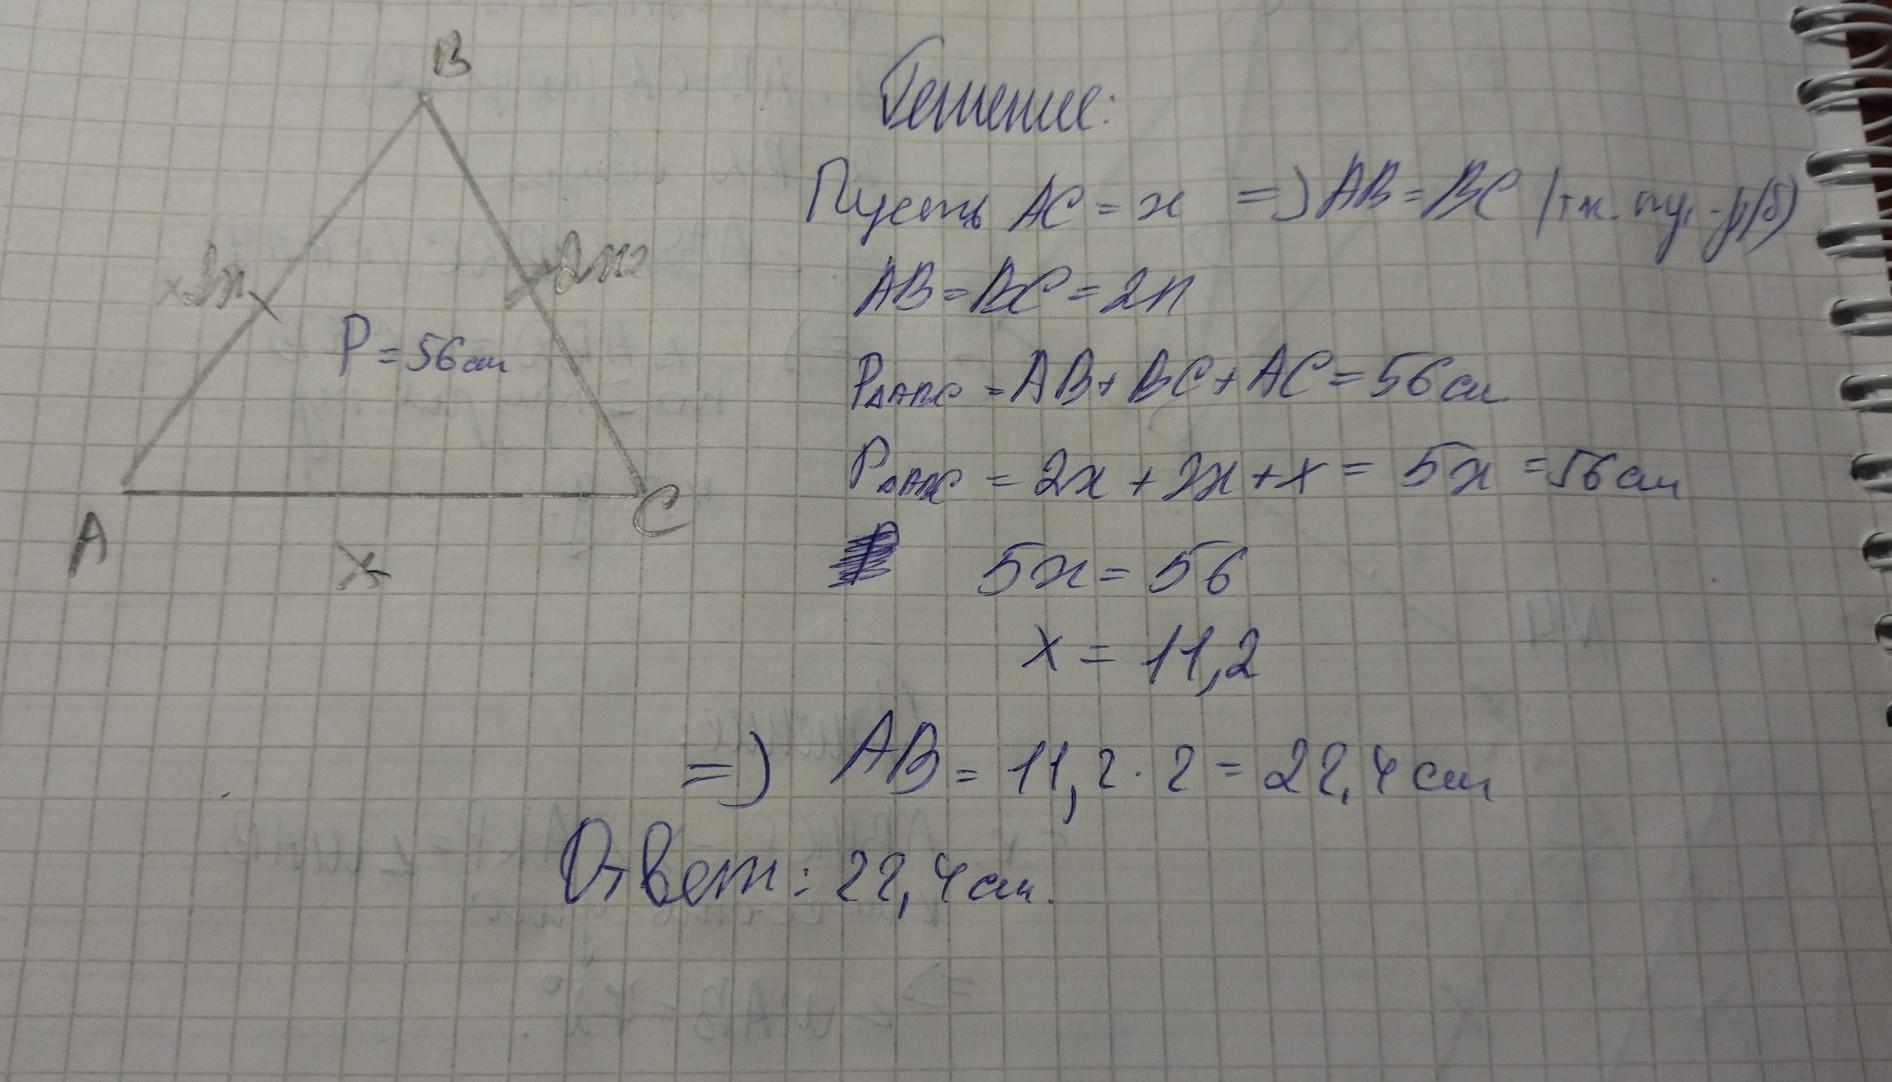 B
2х
2х
P = 56 см
A
C
х
Решение:
Пусть AC = х => AB = BC (т.к. тр. - р/б)
AB = BC = 2х
P△ABC = AB + BC + AC = 56 см
P△ABC = 2х + 2х + х = 5х = 56 см
5х = 56
х = 11,2
=> AB = 11,2 · 2 = 22,4 см
Ответ: 22,4 см.